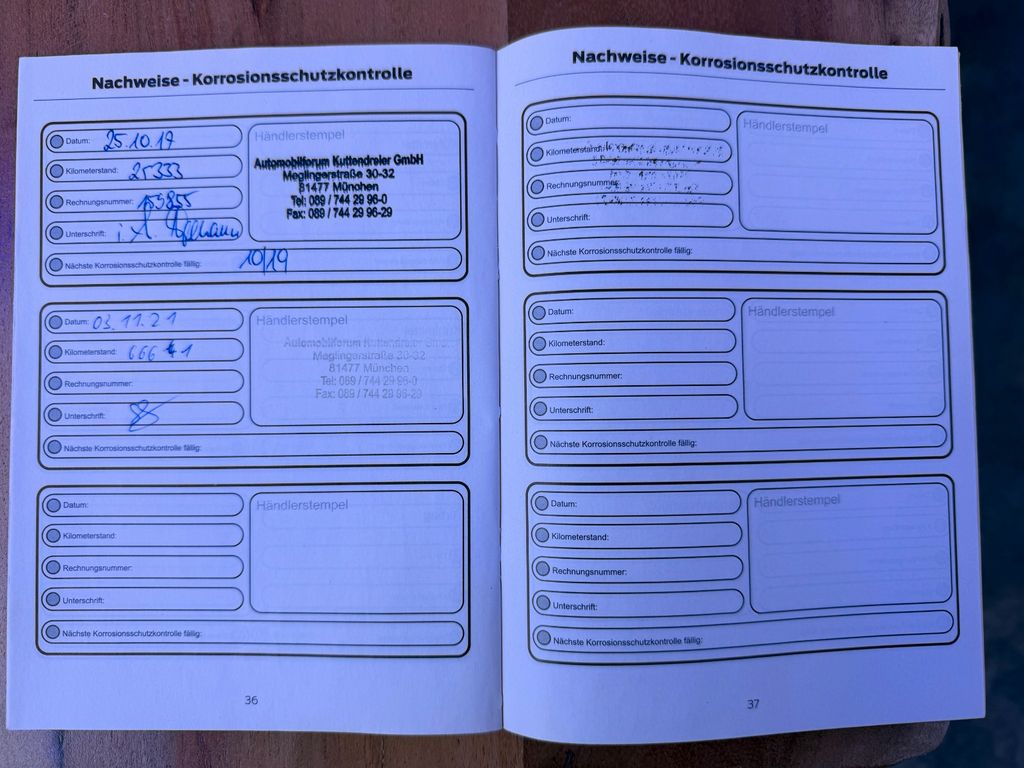 Nachweise - Korrosionsschutzkontrolle
Datum: 25.10.17
Kilometerstand: 25333
Rechnungsnummer: 153855
Unterschrift: i.A.
Nächste Korrosionsschutzkontrolle fällig: 10/19
Händlerstempel
Automobilforum Kuttendreier GmbH
Meglingerstraße 30-32
81477 München
Tel: 089 / 744 29 96-0
Fax: 089 / 744 29 96-29
Datum: 03.11.21
Kilometerstand: 666
Rechnungsnummer:
Unterschrift:
Nächste Korrosionsschutzkontrolle fällig:
Händlerstempel
Automobilforum Kuttendreier GmbH
Meglingerstraße 30-32
81477 München
Tel: 089 / 744 29 96-0
Fax: 089 / 744 29 96-29
Datum:
Kilometerstand:
Rechnungsnummer:
Unterschrift:
Nächste Korrosionsschutzkontrolle fällig:
Händlerstempel
36
Nachweise - Korrosionsschutzkontrolle
Datum:
Kilometerstand:
Rechnungsnummer:
Unterschrift:
Nächste Korrosionsschutzkontrolle fällig:
Händlerstempel
Datum:
Kilometerstand:
Rechnungsnummer:
Unterschrift:
Nächste Korrosionsschutzkontrolle fällig:
Händlerstempel
Datum:
Kilometerstand:
Rechnungsnummer:
Unterschrift:
Nächste Korrosionsschutzkontrolle fällig:
Händlerstempel
37